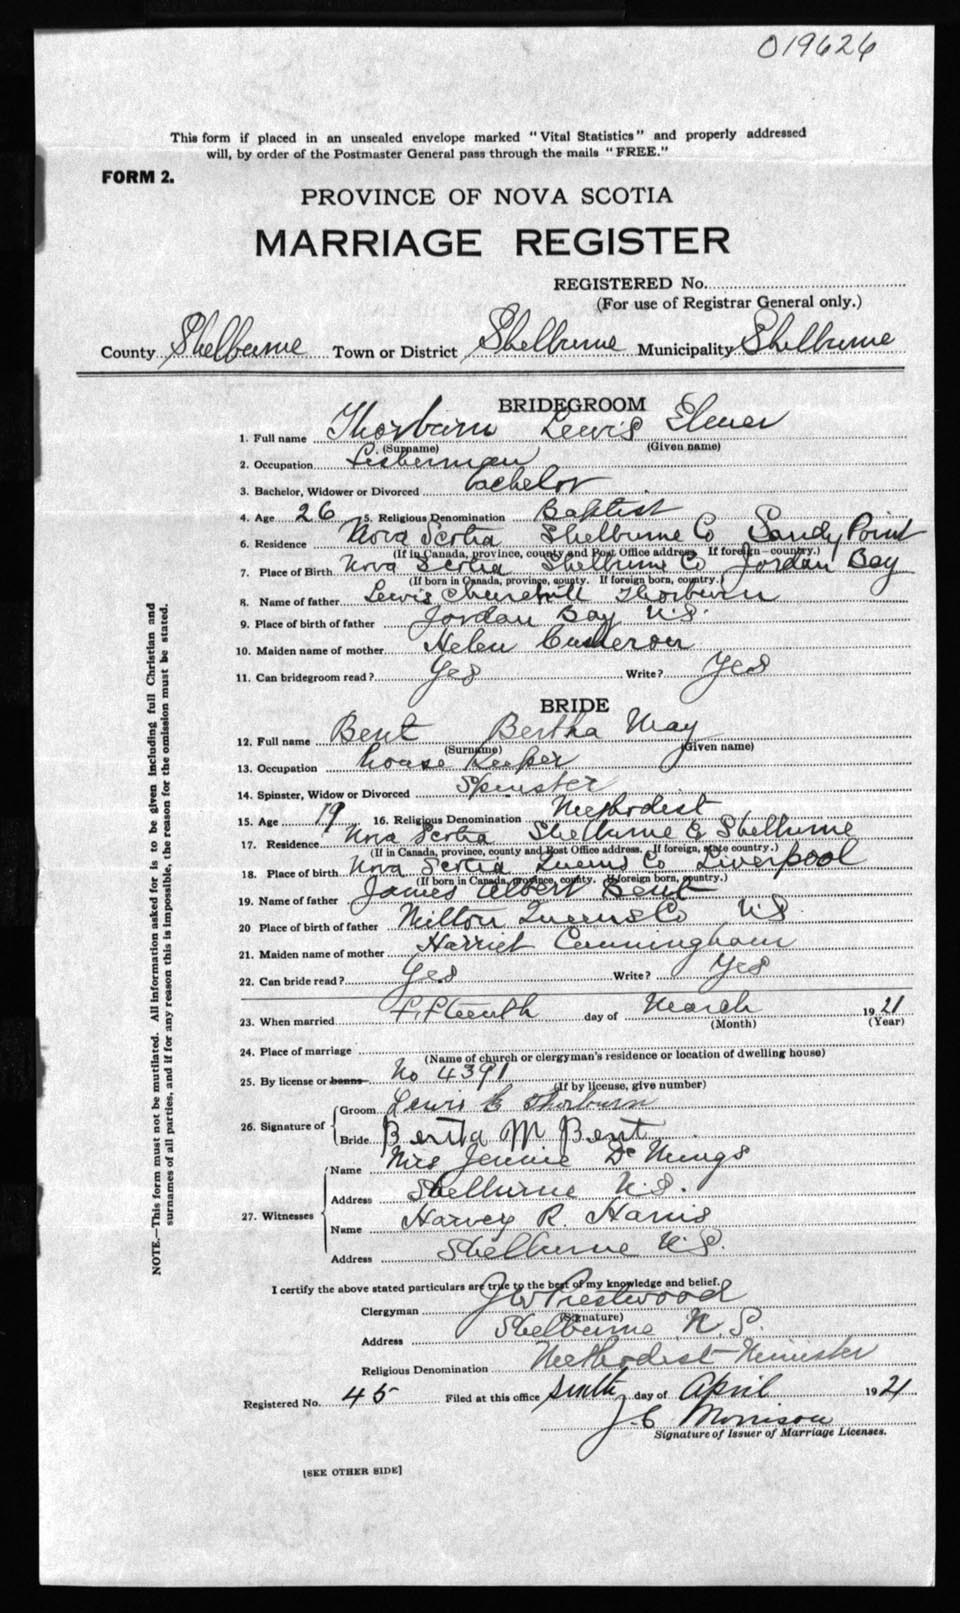 019626
This form if placed in an unsealed envelope marked "Vital Statistics" and properly addressed
will, by order of the Postmaster General pass through the mails "FREE."
FORM 2.
PROVINCE OF NOVA SCOTIA
MARRIAGE REGISTER
REGISTERED No.
(For use of Registrar General only.)
County Shelburne Town or District Shelburne Municipality Shelburne
BRIDEGROOM
1. Full name Thorburn Lewis Elmer
(Surname) (Given name)
2. Occupation Fisherman
3. Bachelor, Widower or Divorced bachelor
4. Age 26 5. Religious Denomination Baptist
6. Residence Nova Scotia Shelburne Co Sandy Point
(If in Canada, province, county and Post Office address. If foreign—country.)
7. Place of Birth Nova Scotia Shelburne Co Jordan Bay
(If born in Canada, province, county. If foreign born, country.)
8. Name of father Lewis Churchill Thorburn
9. Place of birth of father Jordan Bay N.S.
10. Maiden name of mother Helen Cameron
11. Can bridegroom read? Yes Write? Yes
BRIDE
12. Full name Bent Bertha May
(Surname) (Given name)
13. Occupation house Keeper
14. Spinster, Widow or Divorced Spinster
15. Age 19 16. Religious Denomination Methodist
17. Residence Nova Scotia Shelburne Shelburne
(If in Canada, province, county and Post Office address. If foreign, state country.)
18. Place of birth Nova Scotia Queens Co Liverpool
(If born in Canada, province, county. If foreign born, country.)
19. Name of father James Albert Bent
20 Place of birth of father Milton Queens Co N.S.
21. Maiden name of mother Harriet Cunningham
22. Can bride read? Yes Write? Yes
23. When married fifteenth day of March 1921
(Month) (Year)
24. Place of marriage
(Name of church or clergyman's residence or location of dwelling house)
25. By license or banns No 4391
(If by license, give number)
26. Signature of
Groom Lewis E Thorburn
Bride Berta M Bent
27. Witnesses
Name Mrs Jennie
Address Shelburne N.S.
Name Harvey R. Harris
Address Shelburne N.S.
I certify the above stated particulars are true to the best of my knowledge and belief.
Clergyman J W Prestwood
(Signature)
Address Shelburne N.S.
Religious Denomination Methodist Minister
Registered No. 45 Filed at this office Sixth day of April 1921
J. C Morrison
Signature of Issuer of Marriage Licenses.
[SEE OTHER SIDE]
NOTE.—This form must not be mutilated. All information asked for is to be given including full Christian and
surnames of all parties, and if for any reason this is impossible, the reason for the omission must be stated.